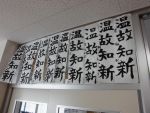 温故知新
温故知新
温故知新
温故知新
温故知新
温故知新
温故知新
温故知新